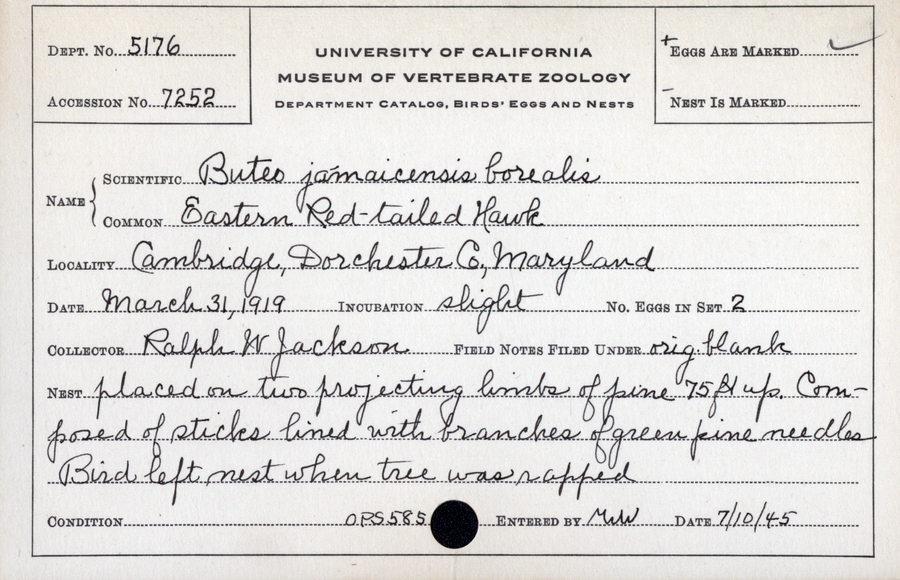 DEPT. No. 5176
ACCESSION No. 7252
UNIVERSITY OF CALIFORNIA
MUSEUM OF VERTEBRATE ZOOLOGY
DEPARTMENT CATALOG, BIRDS' EGGS AND NESTS
+ EGGS ARE MARKED ✓
- NEST IS MARKED
NAME { SCIENTIFIC Buteo jamaicensis borealis
COMMON Eastern Red-tailed Hawk
LOCALITY Cambridge, Dorchester Co., Maryland
DATE March 31, 1919 INCUBATION slight NO. EGGS IN SET 2
COLLECTOR Ralph W Jackson FIELD NOTES FILED UNDER orig. blank
NEST placed on two projecting limbs of pine 75 ft up. Com-
posed of sticks lined with branches of green pine needles
Bird left nest when tree was rapped
CONDITION OPS585 ENTERED BY MWW DATE 7/10/45